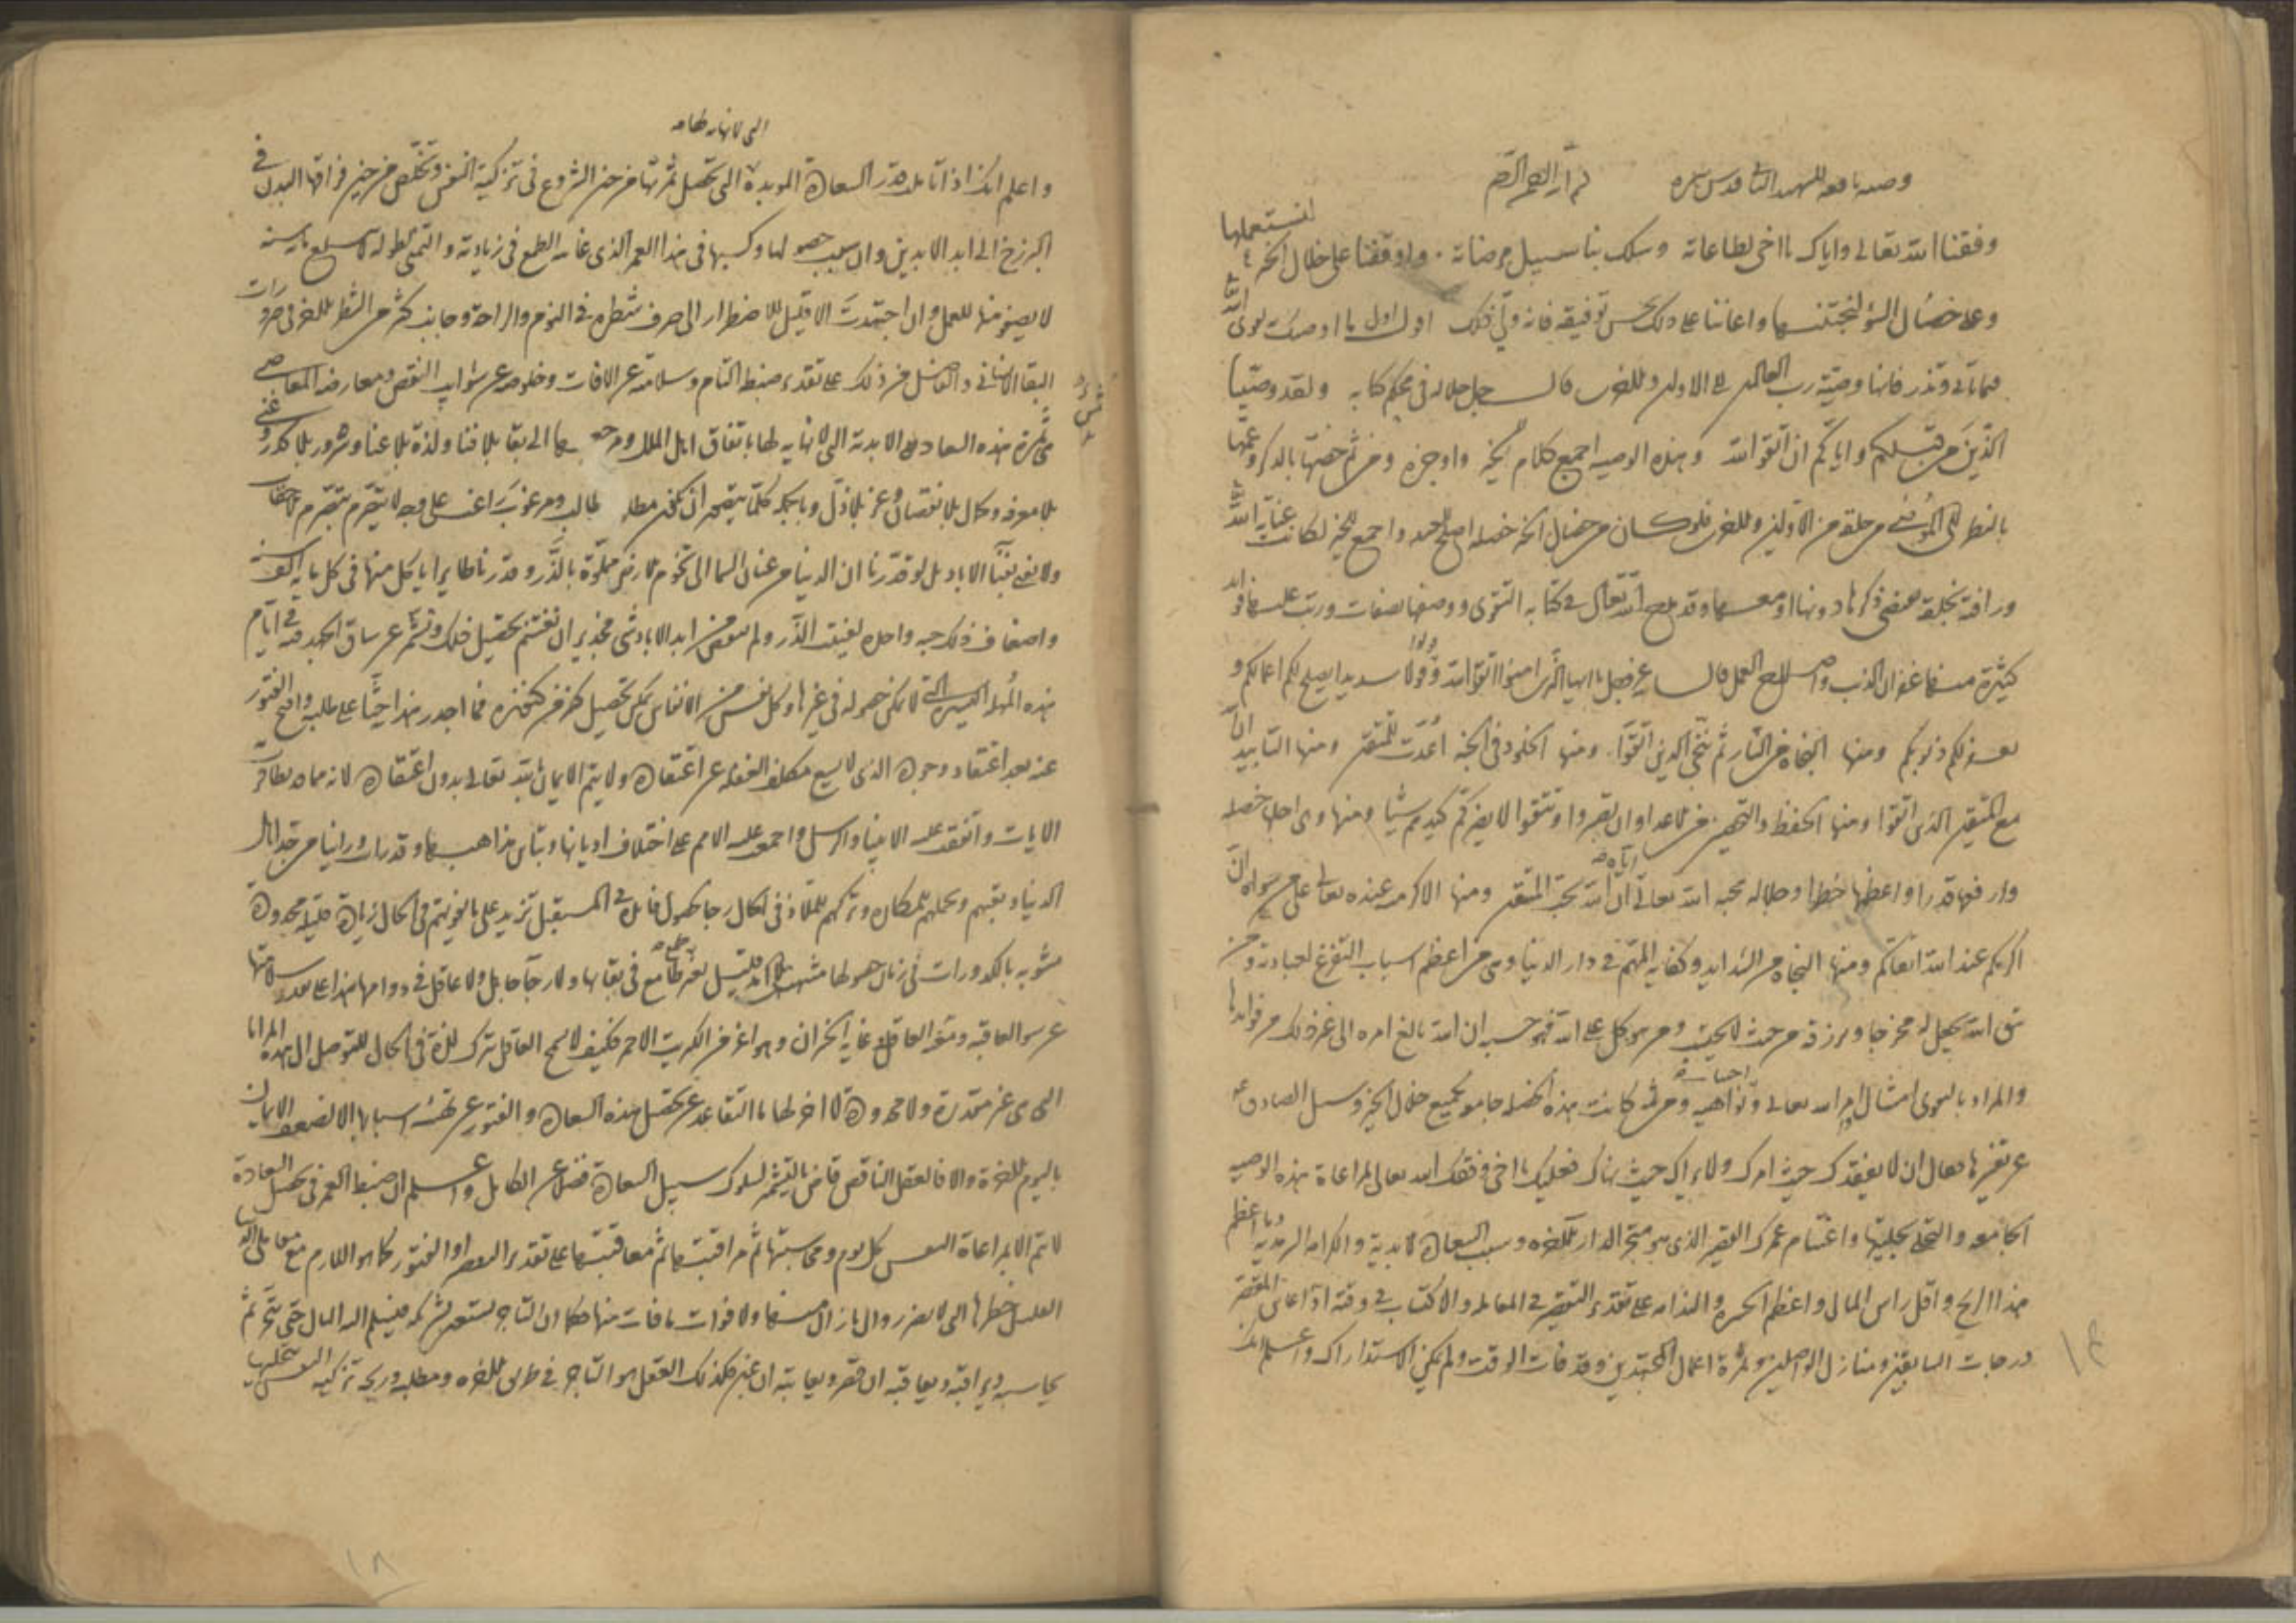 وصية نافعة للشهيد الثاني قدس سره بسم الله الرحمن الرحيم
وفقنا الله تعالى واياك يا اخي لطاعاته وسلك بنا سبيل مرضاته واوقفنا على خلال الخير لنستعملها
وعلى خصال السوء لنجتنبها واعاننا على ذلك بحسن توفيقه فانه ولي ذلك اول اول ما اوصيك تقوى الله
فيما تأتي وتذر فانها وصية رب العالمين الى الاولين والاخرين قال جل جلاله في محكم كتابه ولقد وصينا
الذين من قبلكم واياكم ان اتقوا الله وهذه الوصية اجمع كلام للخير واوجزه ومن ثم خصها بالذكر وعمها
بالنظر الى الموصى من خلقه من الاولين والاخرين فلو كان من خصال الخير خصلة اصلح للعبد واجمع للخير لكانت عناية الله
ورافته بخلقه تقتضي ذكرها دونها او معها وقد مدح الله تعالى في كتابه التقوى ووصفها بصفات ورتب عليها فوائد
كثيرة منها غفران الذنب واصلاح العمل قال عز وجل يا ايها الذين امنوا اتقوا الله وقولوا قولا سديدا يصلح لكم اعمالكم و
يغفر لكم ذنوبكم ومنها النجاة من النار ثم ننجي الذين اتقوا ومنها الخلود في الجنة اعدت للمتقين ومنها التأييد ان الله
مع المتقين الذين اتقوا ومنها الحفظ والتحصين من الاعداء وان تصبروا وتتقوا لا يضركم كيدهم شيئا ومنها وهي اجل خصلة
وارفعها قدرا واعظمها خطرا وجلالة محبة الله تعالى اياه ان الله يحب المتقين ومنها الاكرمية عنده تعالى على من سواه ان
اكرمكم عند الله اتقاكم ومنها النجاة من الشدايد وكفاية المهم في دار الدنيا وهي من اعظم اسباب التفرغ لعبادته ومن
يتق الله يجعل له مخرجا ويرزقه من حيث لا يحتسب ومن يتوكل على الله فهو حسبه ان الله بالغ امره الى غير ذلك من فوائدها
والمراد بالتقوى امتثال اوامر الله تعالى واجتناب نواهيه ومن ثم كانت هذه الخصلة جامعة لجميع خلال الخير وسئل الصادق ع
عن تفسيرها فقال ان لا يفقدك حيث امرك ولا يراك حيث نهاك فعليك يا اخي وفقك الله تعالى لمراعاة هذه الوصية
الجامعة والتحلي بحليتها واغتنام عمرك القصير الذي هو متجر الدار الاخرة وسبب السعادة الابدية والكرامة السرمدية وما اعظم
هذا الربح واقل راس المال واعظم الحسرة والندامة على تقدير التقصير في المعاملة والاكتساب في وقته اذا عاين المقصر
درجات السابقين ومنازل الواصلين وثمرة اعمال المجتهدين وقد فات الوقت ولم يمكن الاستدراك واعلم انك
الى لا نهاية لها صح
واعلم انك اذا تاملت قدر السعادة المؤبدة التي تحصل ثمرتها من حين الشروع في تزكية النفس وتخلص من حين فراقها البدن في
البرزخ الى ابد الابدين وان سبب حصولها وكسبها في هذا العمر الذي غاية الطمع في زيادته والتمني لطوله لا يبلغ ماية سنة
لا يصفو منها للعمل وان اجتهدت الا قليل للاضطرار الى صرف شطره في النوم والراحة وجانب كثير من الشطر الاخر في ضرورات
البقاء الانساني والفاضل من ذلك على تقدير ضبط التام وسلامته عن الافات وخلوصه عن شوايب النقص ومعارضة المعاصي
ثمرته هذه السعادة الابدية التي لا نهاية لها باتفاق اهل الملل ومرجعها الى بقاء بلا فناء ولذة بلا عناء وسرور بلا كدر وغنى
بلا فقر وكمال بلا نقصان وعز بلا ذل وبالجملة كلما يتصور ان يكون مطلوب طالب ومرغوب راغب على وجه لا يتصرم بتصرم الاحقاب
ولا يفنى بفناء الاباد بل لو قدرنا ان الدنيا من عنان السماء الى تخوم الارض مملوة بالذر وقدرنا طايرا ياكل منها في كل ماية الف سنة
واضعاف ذلك حبة واحدة لفنيت الذر ولم ينقص من ابد الاباد شئ فجدير ان تغتنم تحصيل ذلك وتشمر عن ساق الجد فيه في ايام
هذه المهلة اليسيرة التي لا يمكن حصوله في غيرها وكل نفس من الانفاس يمكن تحصيل كنز من كنوزه فما اجدر هذا حثا على طلبه واقبح الفتور
عنه بعد اعتقاد وجوده الذي لا يسع مكلفا الغفلة عن اعتقاده ولا يتم الايمان بالله تعالى بدون اعتقاده لانه مما تظافرت
الايات واتفقت عليه الانبياء والرسل واجمعت عليه الامم على اختلاف اديانها وتباين مذاهبها وقد راينا من جد اهل
الدنيا وتعبهم وتحملهم للمكاره وتركهم للملاذ في الحال رجاء حصول فائدة في المستقبل تزيد على ما يفوتهم في الحال زيادة قليلة محدودة
مشوبة بالكدورات في زمان حصولها غير طامع في بقائها ولا رجا جاهل ولا عاقل في دوامها هذا على تقدير سلامتها
عن سوء العاقبة وهو اعز من الكبريت الاحمر فكيف لا يسمح العاقل بترك لذة في الحال للتوصل الى هذه المزايا
التي هي غير متقدرة ولا محدودة لا اخر لها ما التقاعد عن تحصيل هذه السعادة والفتور عن تهيئة اسبابها الا لضعف الايمان
باليوم الاخر والا فالعقل الناقص قاض بالتشمر لسلوك سبيل السعادة فضلا عن الكامل واعلم ان ضبط العمر في تحصيل السعادة
لا تتم الا بمراعاة النفس كل يوم ومحاسبتها ثم مراقبتها ثم معاقبتها على تقدير التقصير او الفتور كما هو اللازم مع معاملي الدنيا
القليل خطرها التي لا يضر زوال ما زال منها ولا فوات ما فات منها فكما ان التاجر يستعين بشريكه فيسلم اليه المال حتى يتجر ثم
يحاسبه ويراقبه ويعاقبه ان قصر ويعاتبه ان غبن فكذلك العقل هو التاجر في طريق الاخرة ومطلبه وربحه تزكية النفس
١٨